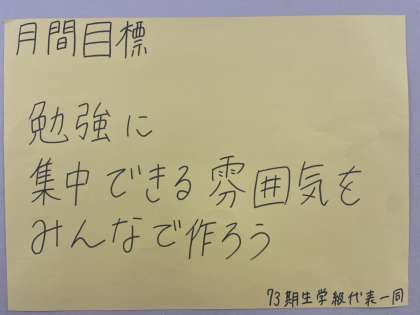 月間目標
勉強に
集中できる雰囲気を
みんなで作ろう
73期生学級代表一同